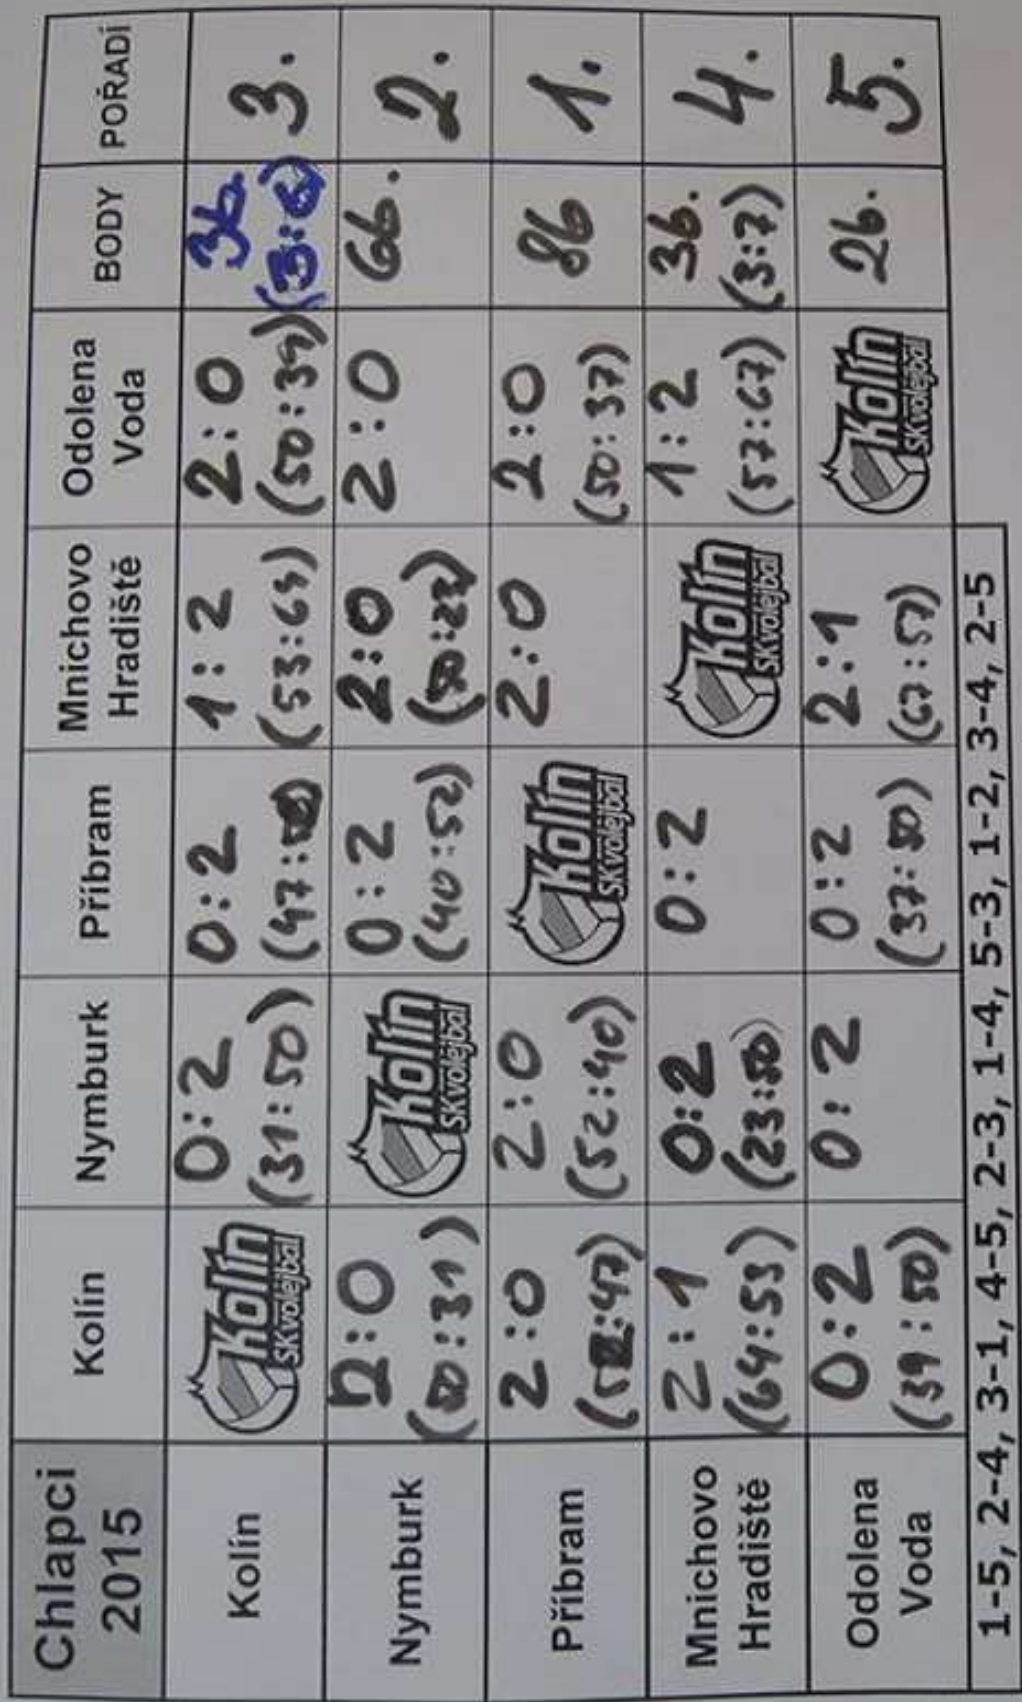 Chlapci
2015
Kolín
Nymburk
Příbram
Mnichovo
Hradiště
Odolena
Voda
BODY
POŘADÍ
Kolín
Kolín
SKvolejbal
0:2
(31:50)
0:2
(47:
1:2
(53:64)
2:0
(50:39)
3b
(3:6)
3.
Nymburk
2:0
(50:31)
Kolín
SKvolejbal
0:2
(40:52)
2:0
2:0
6b.
2.
Příbram
2:0
:47)
2:0
(52:40)
Kolín
SKvolejbal
2:0
2:0
(50:37)
8b
1.
Mnichovo
Hradiště
2:1
(64:53)
0:2
(23:50)
0:2
Kolín
SKvolejbal
1:2
(57:67)
3b.
(3:7)
4.
Odolena
Voda
0:2
(39:50)
0:2
0:2
(37:50)
2:1
(67:57)
Kolín
SKvolejbal
2b.
5.
1-5, 2-4, 3-1, 4-5, 2-3, 1-4, 5-3, 1-2, 3-4, 2-5